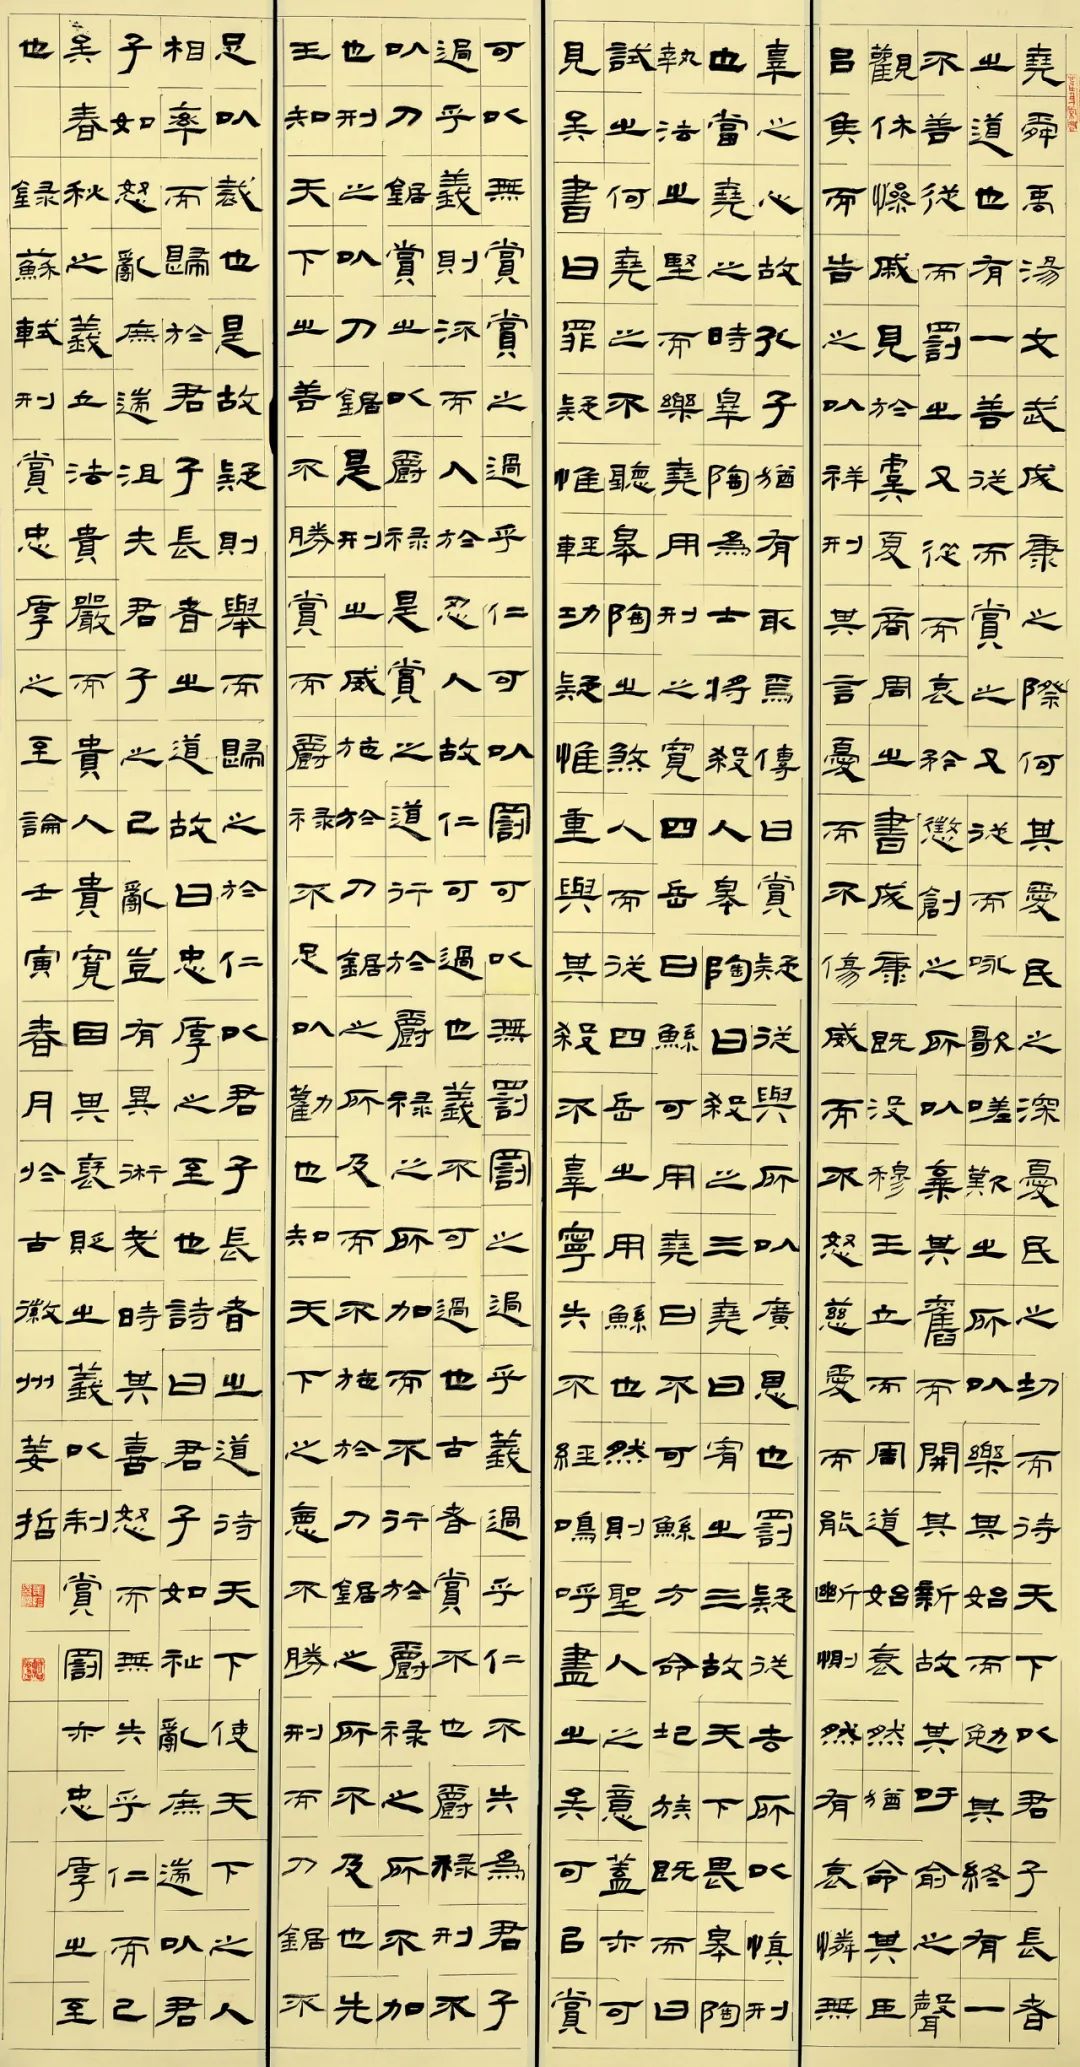 堯舜禹湯文武成康之際何其愛民之深憂民之切而待天下以君子長者
之道也有一善從而賞之又從而咏歌嗟歎之所以樂其始而勉其終有一
不善從而罰之又從而哀矜懲創之所以棄其舊而開其新故其吁俞之聲
觀休慘戚見於虞夏商周之書成康既沒穆王立而周道始衰然猶命其臣
呂侯而告之以祥刑其言憂而不傷威而不怒慈愛而能斷惻然有哀憐無
辜之心故孔子猶有取焉傳曰賞疑從與所以廣恩也罰疑從去所以慎刑
也當堯之時皋陶為士將殺人皋陶曰殺之三堯曰宥之三故天下畏皋陶
執法之堅而樂堯用刑之寬四岳曰鯀可用堯曰不可鯀方命圮族既而曰
試之何堯之不聽皋陶之煞人而從四岳之用鯀也然則聖人之意蓋亦可
見矣書曰罪疑惟輕功疑惟重與其殺不辜寧失不經嗚呼盡之矣可以賞
可以無賞賞之過乎仁可以罰可以無罰罰之過乎義過乎仁不失為君子
過乎義則流而入於忍人故仁可過也義不可過也古者賞不也爵祿刑不
以刀鋸賞之以爵祿是賞之道行於爵祿之所加而不行於爵祿之所不加
也刑之以刀鋸是刑之威施於刀鋸之所及而不施於刀鋸之所不及也先
王知天下之善不勝賞而爵祿不足以勸也知天下之惡不勝刑而刀鋸不
足以裁也是故疑則舉而歸之於仁以君子長者之道待天下使天下之人
相率而歸於君子長者之道故曰忠厚之至也詩曰君子如祉亂庶遄以君
子如怒亂庶遄沮夫君子之已亂豈有異術哉時其喜怒而無失乎仁而已
矣春秋之義立法貴嚴而責人貴寬因其褒貶之義以制賞罰亦忠厚之至
也 錄蘇軾刑賞忠厚之至論壬寅春月於古徽州姜哲